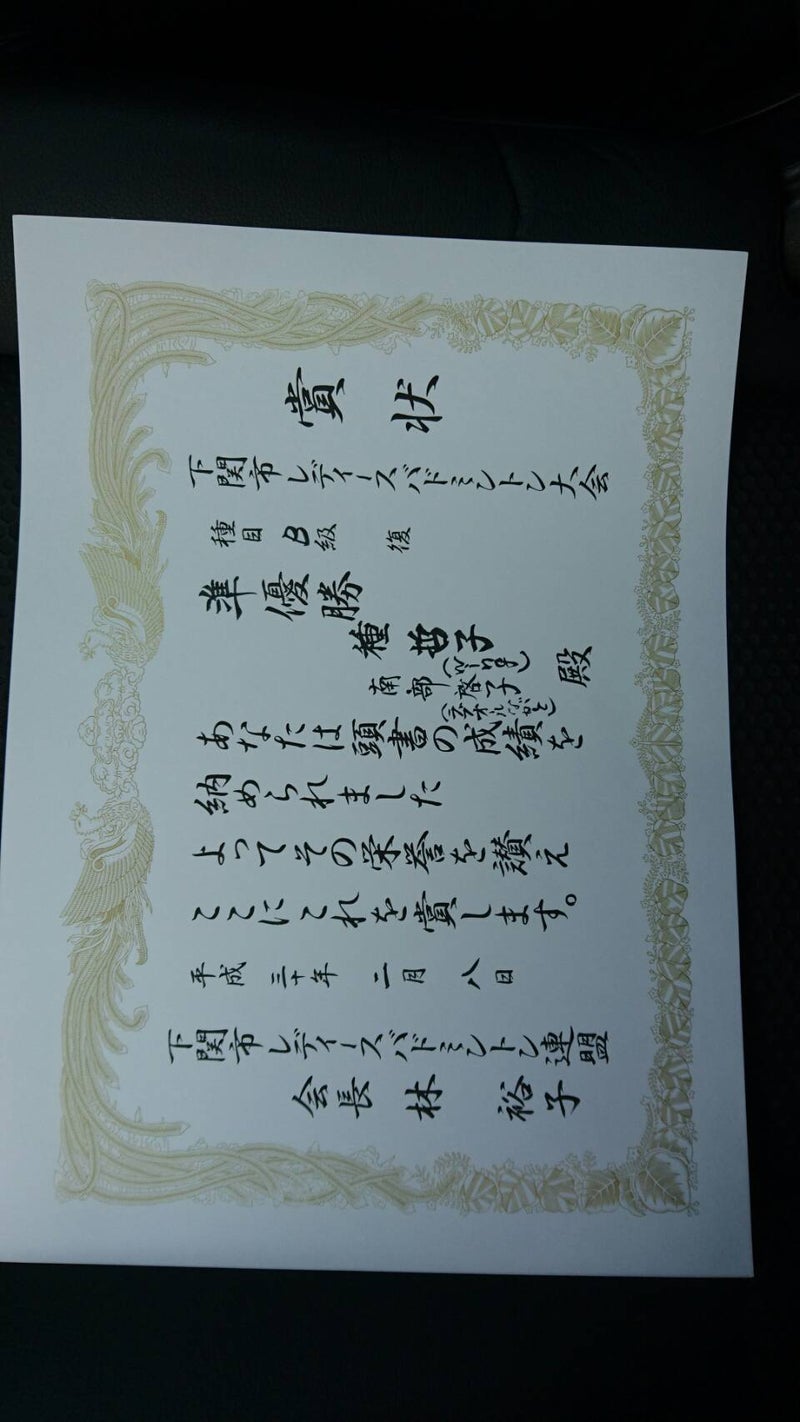 賞状
下関市レディースバドミントン大会
種目 B級 復
準優勝
種 哲子
南部啓子
殿
あなたは頭書の成績を
納められました
よってその栄誉を讃え
ここにこれを賞します。
平成 三十年 二月 八日
下関市レディースバドミントン連盟
会長 林 裕子